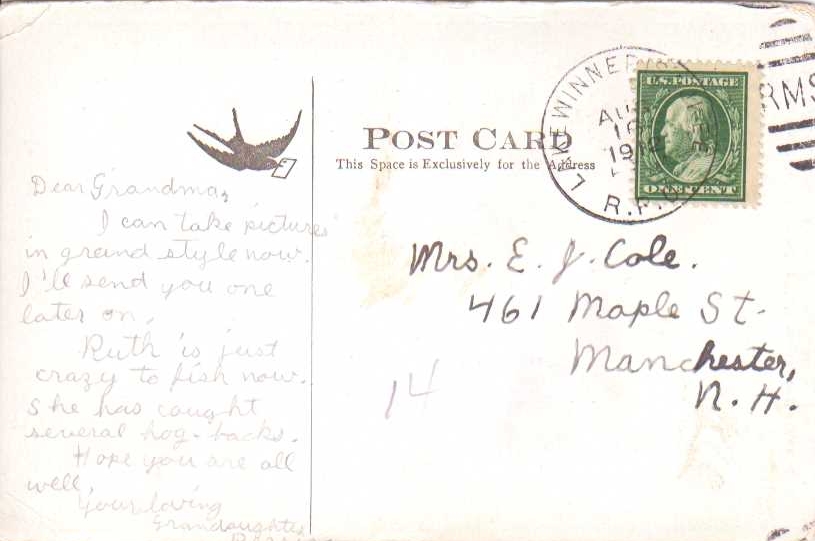 POST CARD
This Space is Exclusively for the Address
U.S. POSTAGE
ONE CENT
LAKE
AUG
R.P.O.
RMS
Dear Grandma,
I can take pictures
in grand style now.
I'll send you one
later on.
Ruth is just
crazy to fish now.
She has caught
several hog-backs.
Hope you are all
well,
Your loving
Grandaughter
Mrs. E. J. Cole.
461 Maple St.
Manchester,
N. H.
14